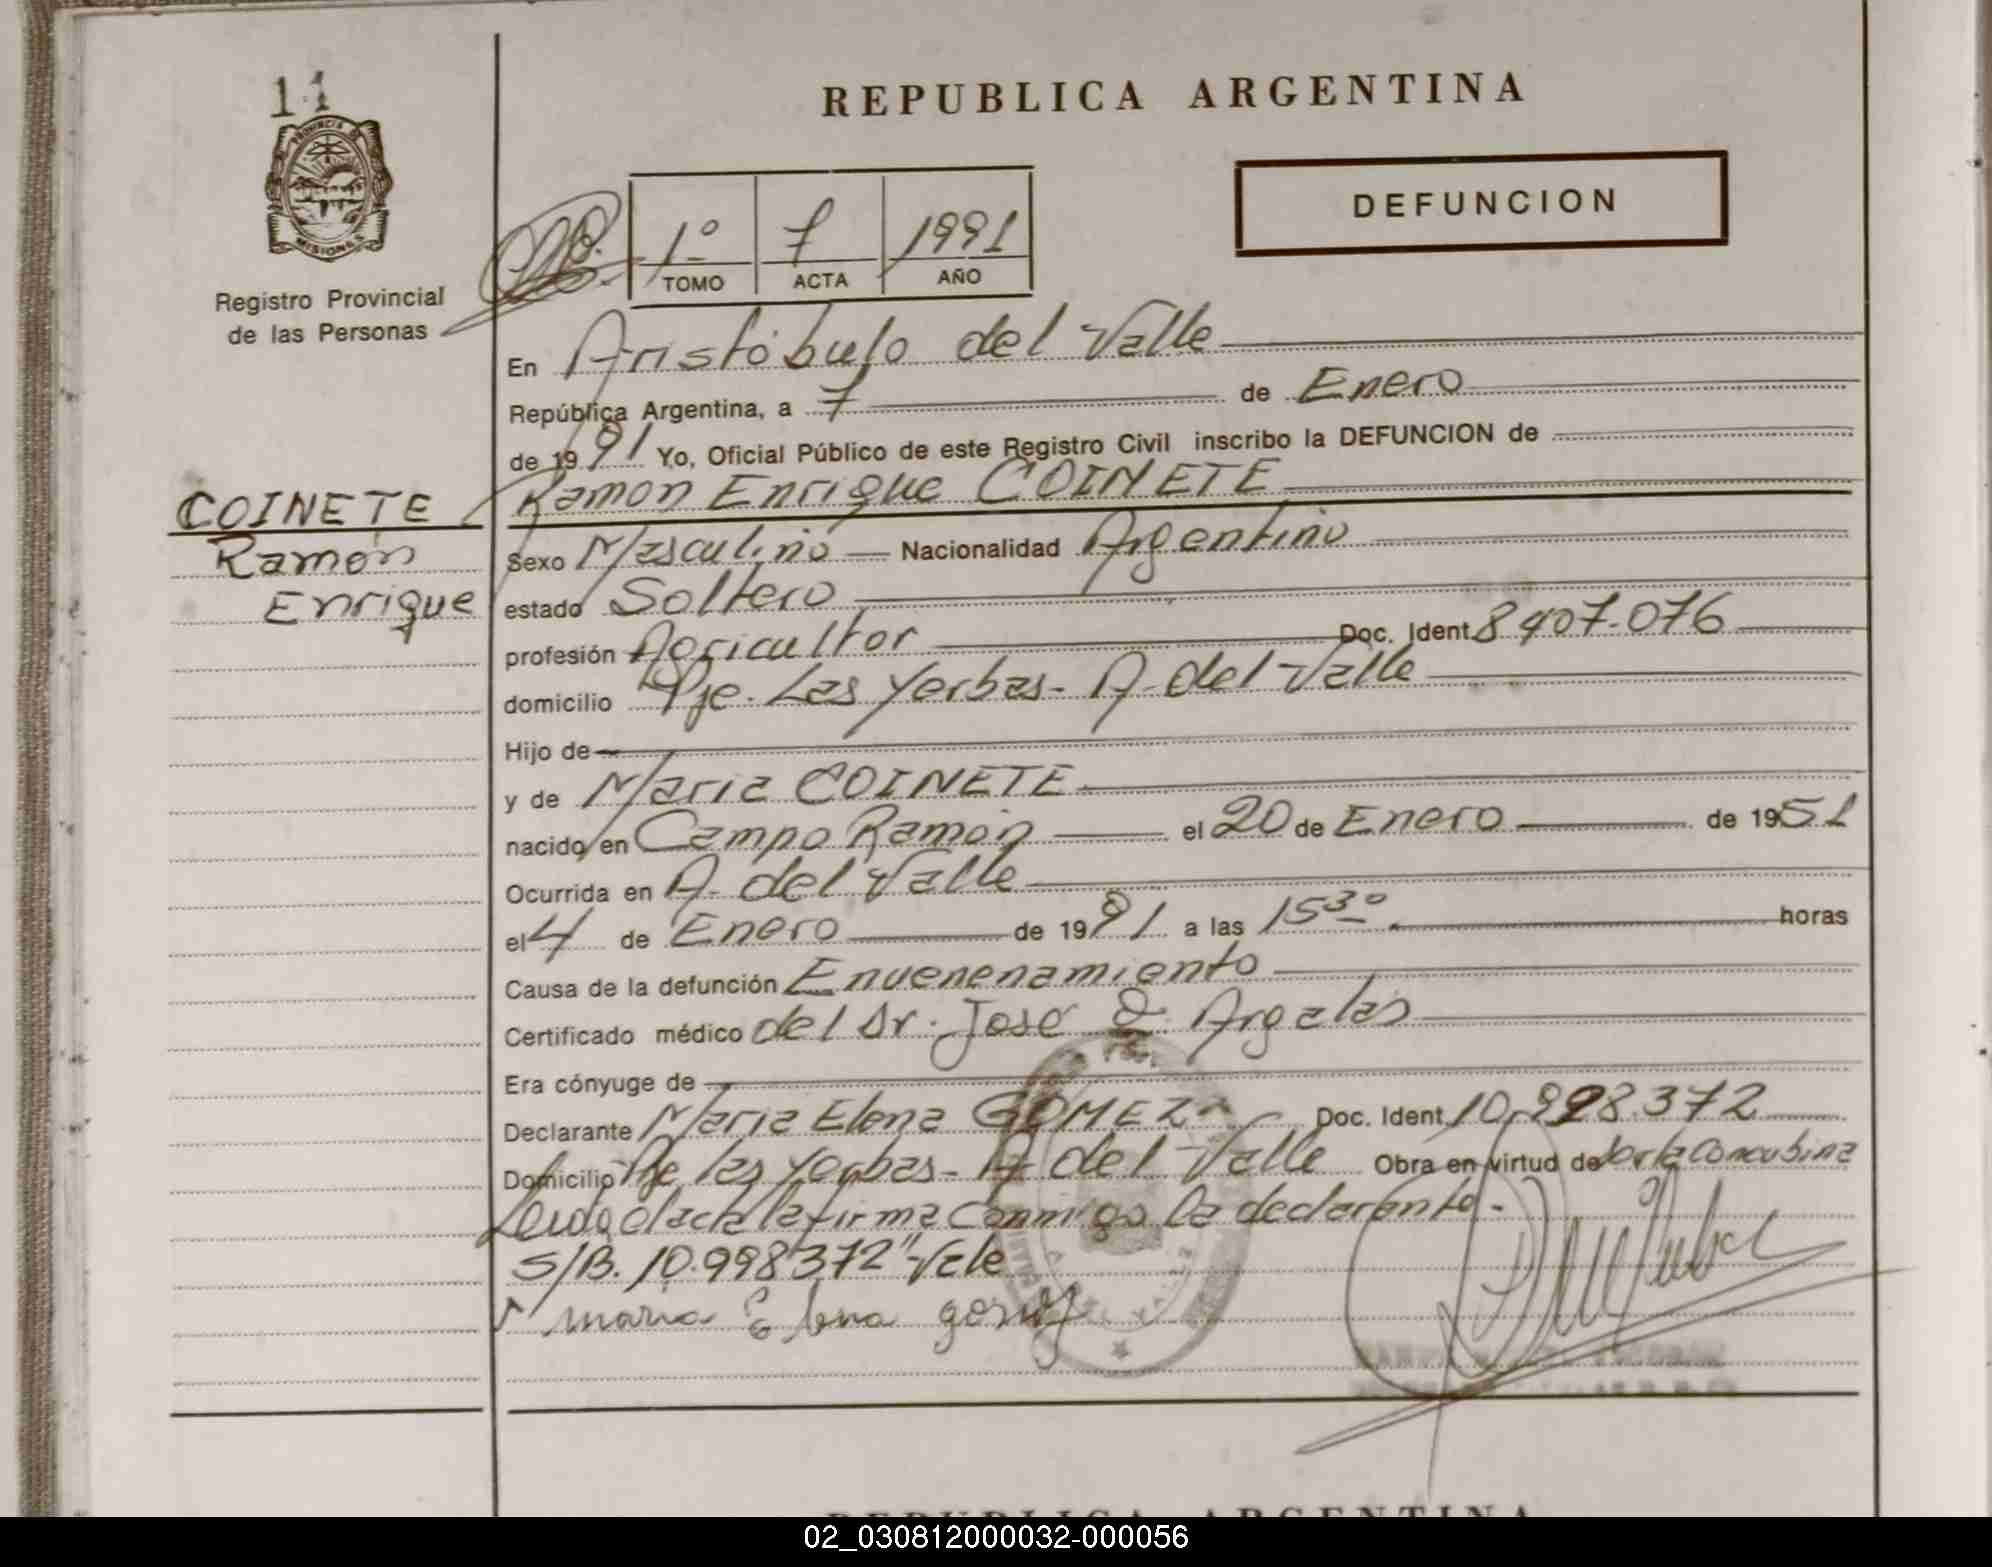 11
PROVINCIA DE
MISIONES
Registro Provincial
de las Personas
COINETE
Ramón
Enrique
REPUBLICA ARGENTINA
DEFUNCION
1º 7 1991
TOMO ACTA AÑO
En Aristóbulo del Valle
República Argentina, a 7 de Enero
de 1991 Yo, Oficial Público de este Registro Civil inscribo la DEFUNCION de
Ramon Enrique COINETE
Sexo Masculino Nacionalidad Argentino
estado Soltero
profesión Agricultor Doc. Ident. 8407.076
domicilio Pje. Las Yerbas - A. del Valle
Hijo de
y de Maria COINETE
nacido en Campo Ramón el 20 de Enero de 1951
Ocurrida en A. del Valle
el 4 de Enero de 1991 a las 15 30 horas
Causa de la defunción Envenenamiento
Certificado médico del Dr. José Argalas
Era cónyuge de
Declarante Maria Elena GOMEZ Doc. Ident. 10.998.372
Domicilio Pje las Yerbas - A del Valle Obra en virtud de ser la Concubina
Leida el acta la firma Conmigo la declarante.-
S/B. 10.998372" Vale
maria Elena gomez
REPUBLICA ARGENTINA
02_030812000032-000056